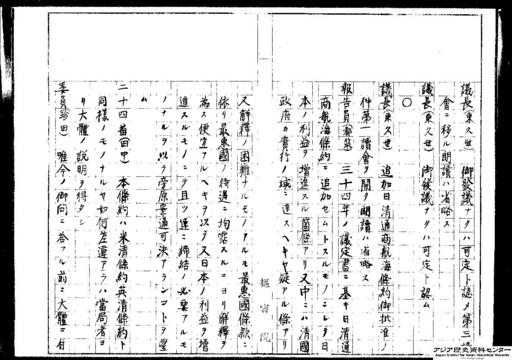 議長(東久世) 御發議ナケハ可定ト認メ第三讀
會ニ移ル朗讀ハ省略ス
議長(東久世) 御發議ナケハ可定ト認ム
〇
議長(東久世) 追加日清通商航海條約御批准ノ
件第一讀會ヲ開ク朗讀ハ省略ス
報告員 三十四年ノ議定書ニ基キ日清通
商航海條約ニ追加セムトスルモノニシテ日
本ノ利益ヲ增進スル箇條アリ又中ニハ清國
政府カ實行ノ域ニ進スヘキヤ疑アル條アリ
樞密院
又解釋ノ困難ナルモノアルモ最惠國條款ニ
依リ最惠國ノ待遇ニ均霑スルニヨリ解釋ヲ
爲ス便宜アルヘキヲ以テ又日本ノ利益ヲ增
進スルモノニシテ且ツ速ニ締結ノ必要アルモ
ノナルヲ以テ原案通可決アランコトヲ望
ム
二十四番(田中) 本條約ハ米清條約英清條約ト
同樣ノモノナルヤ如何差違アラハ當局者ヨ
リ大體ノ説明ヲ得タシ
委員(珍田) 唯今ノ御問ニ答フル前ニ大體ニ付
アジア歴史資料センター
Japan Center for Asian Historical Records